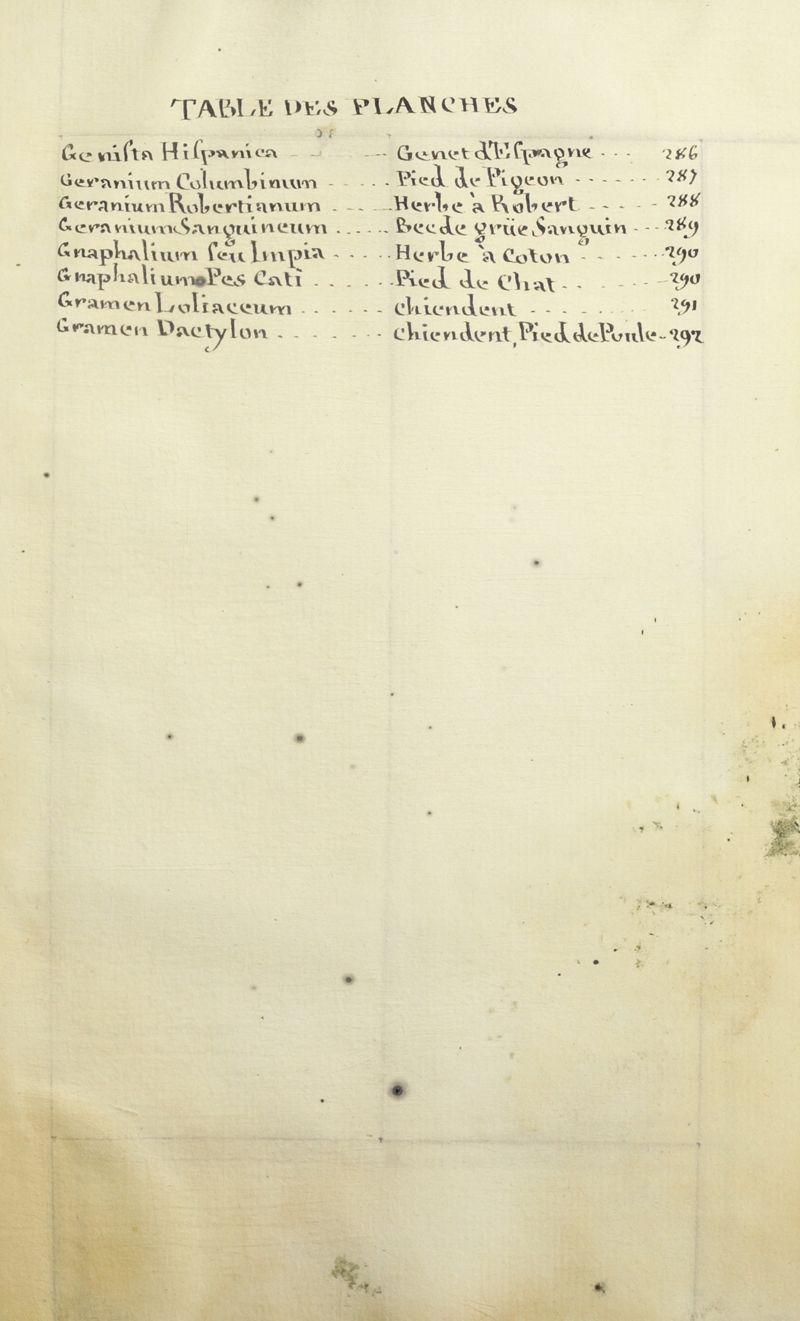 TABLE DES PLANCHES
Geniſta Hiſpanica - - - - Genet d'Eſpagne - - - 286
Geranium Columbinum - . . . Pied de Pigeon - - - - - - 287
Geranium Robertianum . - - . Herbe à Robert - - - - - 288
Geranium Sanguineum . . . . . Becde grüe Sanguin - - - 289
Gnaphalium ſeu Impia - - - . . Herbe à Coton - - - - - . . 290
Gnaphalium Pes Cati . . . . . . Pied de Chat - - - - - - 290
Gramen Loliaceum . . . . . - chiendent - - - - - 291
Gramen Dactylon . - . . . - - chiendent, Pied dePoule - 292